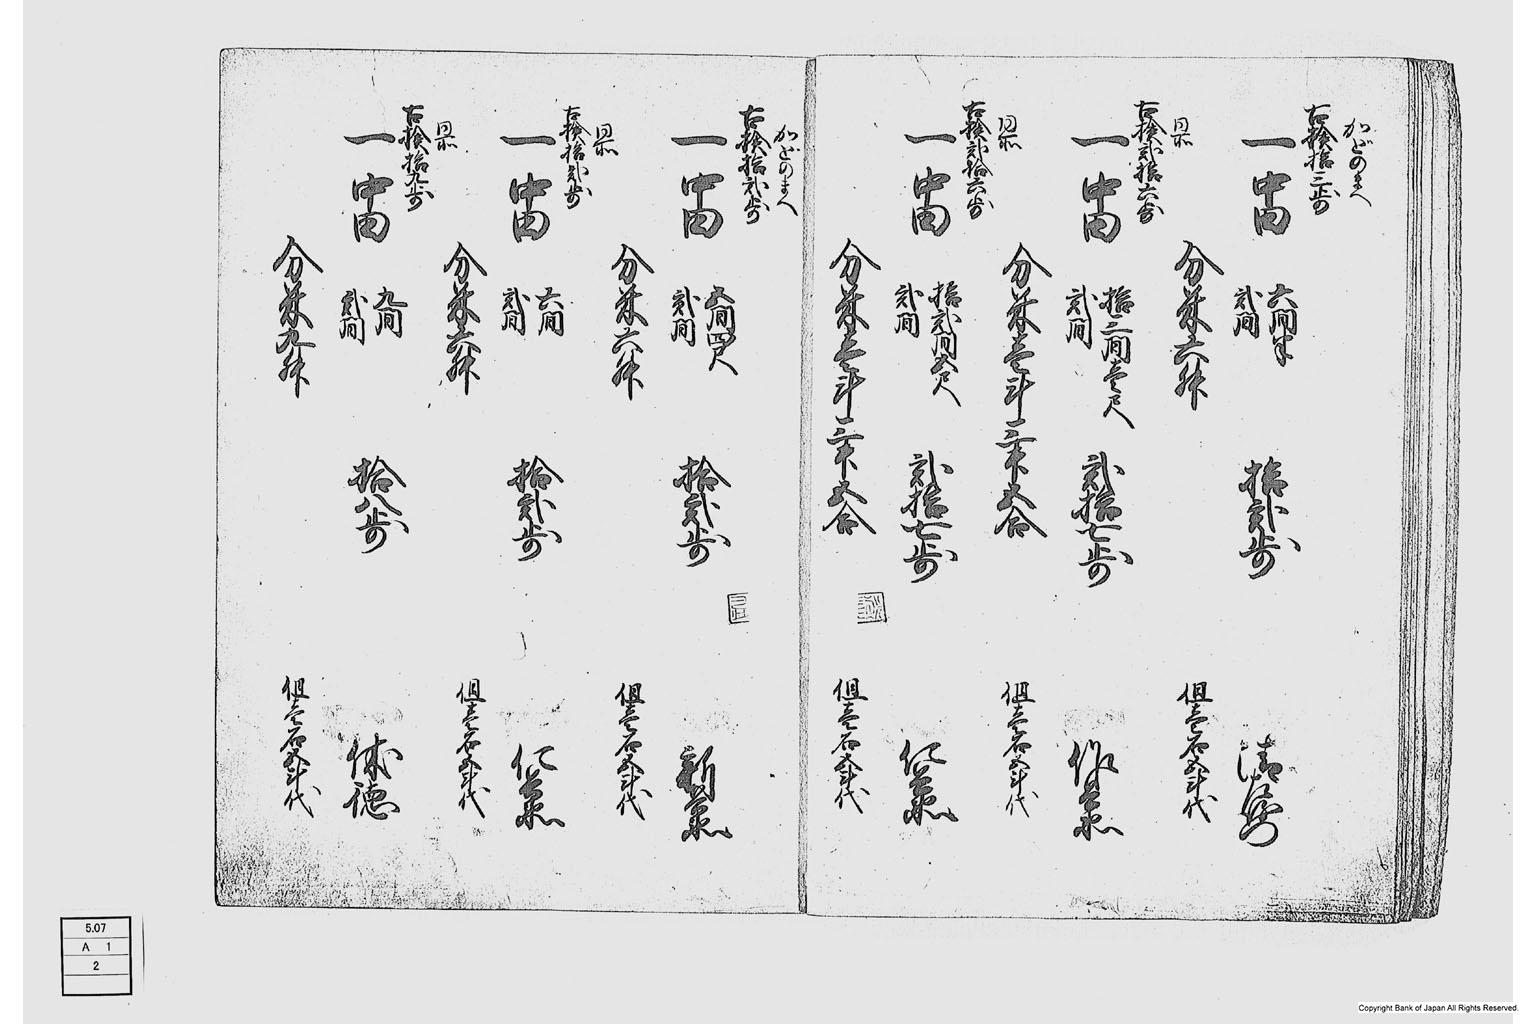 かどのまへ
古検拾三歩
一中田
六間半
弐間
拾弐歩
分米六升
但壱石五斗代
同所
古検弐拾六歩
一中田
拾三間壱尺
弐間
弐拾七歩
作蔵
分米壱斗三升五合
但壱石五斗代
同所
古検弐拾六歩
一中田
拾弐間五尺
弐間
弐拾七歩
仁蔵
分米壱斗三升五合
但壱石五斗代
かどのまへ
古検拾弐歩
一中田
五間四尺
弐間
拾弐歩
新蔵
分米六升
但壱石五斗代
同所
古検拾弐歩
一中田
六間
弐間
拾弐歩
仁蔵
分米六升
但壱石五斗代
同所
古検拾九歩
一中田
九間
弐間
拾八歩
休徳
分米九升
但壱石五斗代
5.07
A 1
2
Copyright Bank of Japan All Rights Reserved.